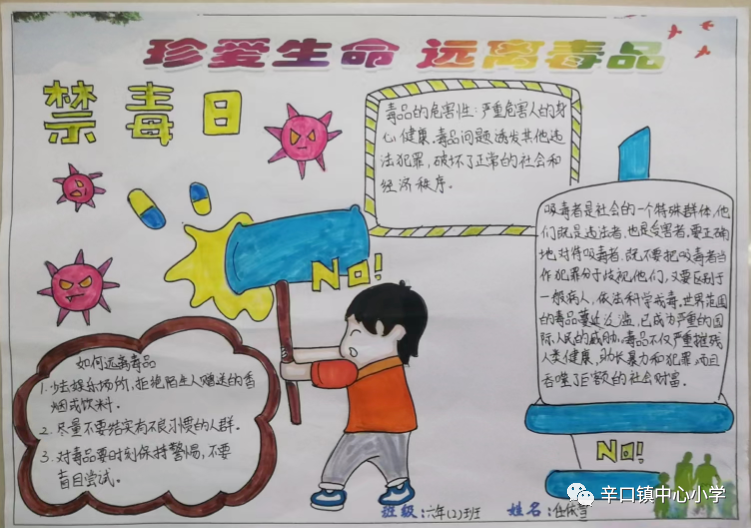 珍爱生命 远离毒品
禁毒日
毒品的危害性：严重危害人的身
心健康，毒品问题诱发其他违
法犯罪，破坏了正常的社会和
经济秩序。
吸毒者是社会的一个特殊群体，他
们既是违法者，也是受害者，要正确
地对待吸毒者，既不要把吸毒者当
作犯罪分子歧视他们，又要区别于
一般病人，依法科学戒毒。世界范围
的毒品蔓延泛滥，已成为严重的国
际人民的威胁。毒品不仅严重摧残
人类健康，助长暴力和犯罪，而且
吞噬了巨额的社会财富。
No!
如何远离毒品
1. 少去娱乐场所，拒绝陌生人赠送的香
烟或饮料。
2. 尽量不要结实有不良习惯的人群。
3. 对毒品要时刻保持警惕，不要
盲目尝试。
No!
班级：六年(2)班 姓名：
辛口镇中心小学